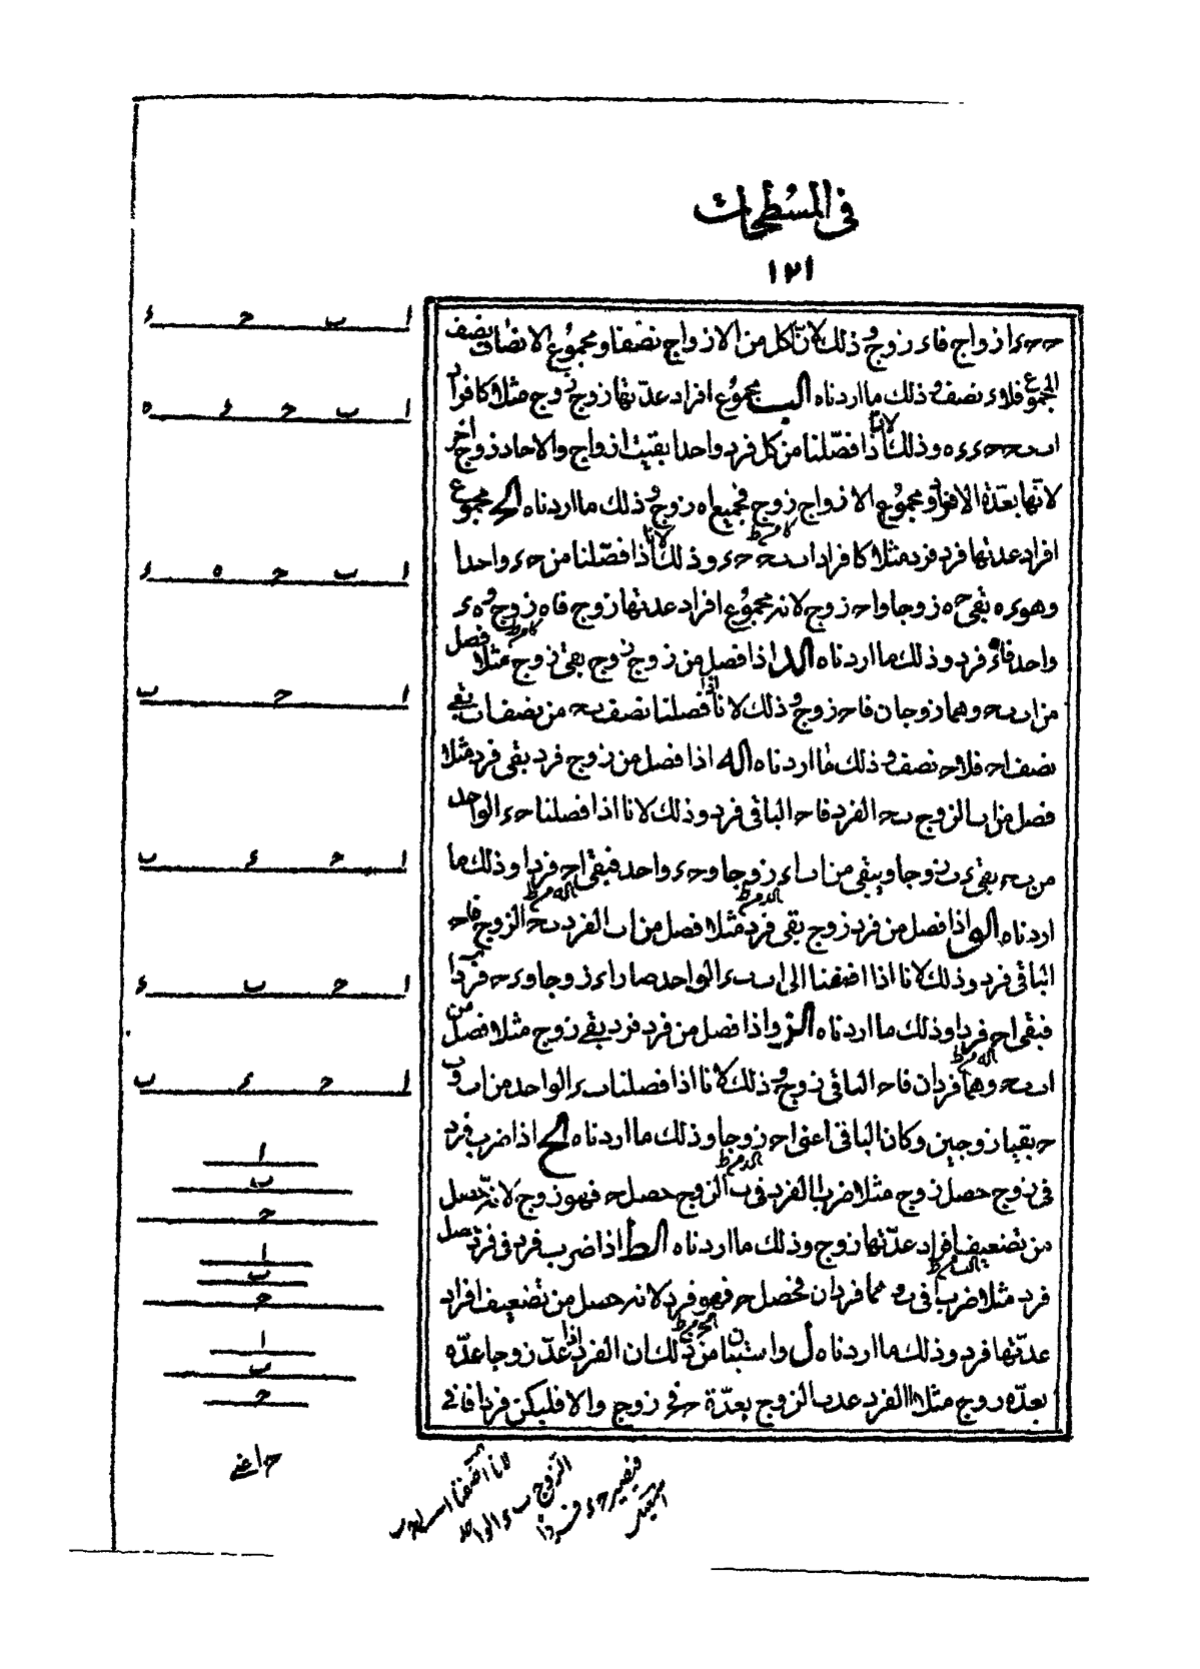 فى المسطحات
١٢١
ا ب ح ء
حـ حـ ء ازواج فاء زوج وذلك لان لكل من الازواج نصفا ومجموع الانصاف نصف
المجموع فلاء نصف وذلك ما اردناه الب مجموع افراد عدتها زوج زوج مثلا كافراد
ا ب ح ء ه
اب بح حء ءه وذلك لانا اذا فصلنا من كل فرد واحدا بقيت ازواج والاحاد زوج اخر
لانها بعدة الافراد ومجموع الازواج زوج فجميع اه زوج وذلك ما اردناه الح مجموع
افراد عدتها فرد فرد مثلا كافراد اب بح حء وذلك لانا اذا فصلنا من حء واحدا
ا ب ح ه ء
وهو ءه بقى حه زوجا واح زوج لانه مجموع افراد عدتها زوج فاه زوج وه ء
واحد فاء فرد وذلك ما اردناه الد اذا فصل من زوج زوج بقى زوج مثلا فصل
ا ح ب
من اب بح وهما زوجان فاح زوج وذلك لانا اذا فصلنا نصف بح من نصف اب بقى
نصف اح فلاح نصف وذلك ما اردناه اله اذا فصل من زوج فرد بقى فرد مثلا
فصل من اب الزوج بح الفرد فاح الباقى فرد وذلك لانا اذا فصلنا حء الواحد
ا ح ء ب
من بح بقى ءب زوجا ويبقى من اب اء زوجا وحء واحد فبقى اح فردا وذلك ما
اردناه الو اذا فصل من فرد زوج بقى فرد مثلا فصل من اب الفرد بح الزوج فاح
ا ح ب ء
الباقى فرد وذلك لانا اذا اضفنا الى اب بء الواحد صار اء زوجا وءح فردا
فبقى اح فردا وذلك ما اردناه الز واذا فصل من فرد فرد بقى زوج مثلا فصل من
ا ح ء ب
اب بح وهما فردان فاح الباقى زوج وذلك لانا اذا فصلنا بء الواحد من اب وب
ح بقيا زوجين وكان الباقى اعنى اح زوجا وذلك ما اردناه لح اذا ضرب فرد
ا
ب
ح
فى زوج حصل زوج مثلا ضرب ا الفرد فى ب الزوج حصل ح فهو زوج لانه حصل
من تضعيف افراد عدتها زوج وذلك ما اردناه الط اذا ضرب فرد فى فرد حصل
ا
ب
ح
فرد مثلا ضرب ا فى ب وهما فردان فحصل ح فهو فرد لانه حصل من تضعيف افراد
عدتها فرد وذلك ما اردناه ل واستبنا من ذلك ان الفرد اذا عد زوجا عده
ا
ب
ح
بعدة زوج مثلا ا الفرد عد ب الزوج بعدة ح فح زوج والا فليكن فردا فا فى
ح اعنى
لانا اضفنا
الزوج بء الواحد
فيصير حء فردا